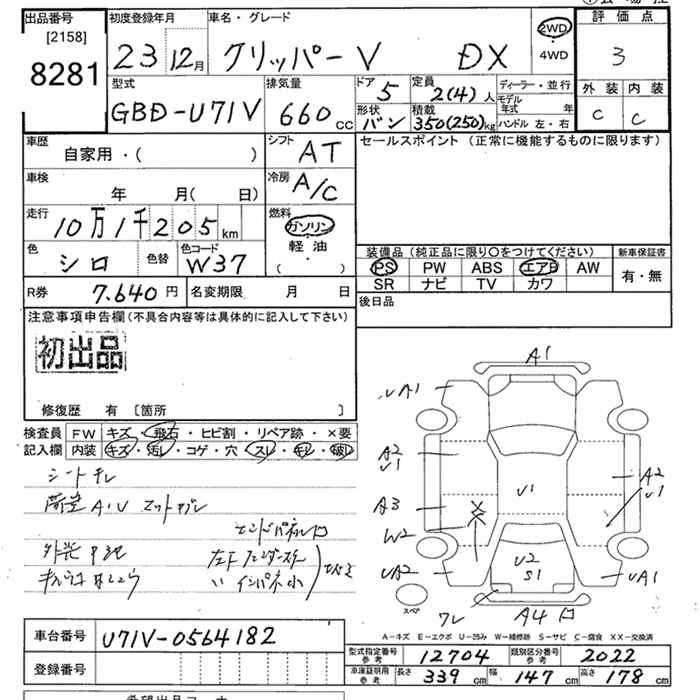 出品番号 [2158] 8281
初度登録年月 23 12月
車名・グレード クリッパーV DX
2WD ・ 4WD
評価点 3
外装 C 内装 C
型式 GBD-U71V
排気量 660 cc
ドア 5
形状 バン
定員 2(4)人
積載 350(250)kg
ディーラー・並行
モデル年式 年
ハンドル 左・右
車歴 自家用・( )
シフト AT
車検 年 月( 日)
冷房 A/C
走行 10万1千205km
燃料 ガソリン・軽油・( )
色 シロ 色替 色コード W37
R券 7.640円 名変期限 月 日
セールスポイント (正常に機能するものに限ります)
装備品(純正品に限り〇をつけてください) 新車保証書
PS PW ABS エアB AW 有・無
SR ナビ TV カワ
後日品
注意事項申告欄(不具合内容等は具体的に記入して下さい)
初出品
修復歴 有 [箇所 ]
検査員 FW キズ・飛石・ヒビ割・リペア跡・×要
記入欄 内装 キズ・汚レ・コゲ・穴・スレ・キレ・破レ
シートキレ
A1
UA1
A2
U1
A3
W2
UA2
U1
A2
U1
U2
S1
UA1
A4
ワレ
スペア
A-キズ E-エクボ U-凹み W-補修跡 S-サビ C-腐食 XX-交換済
車台番号 U71V-0564182
登録番号
型式指定番号 参考 12704 類別区分番号 参考 2022
車庫証明用 参考 長さ 339cm 幅 147cm 高さ 178cm